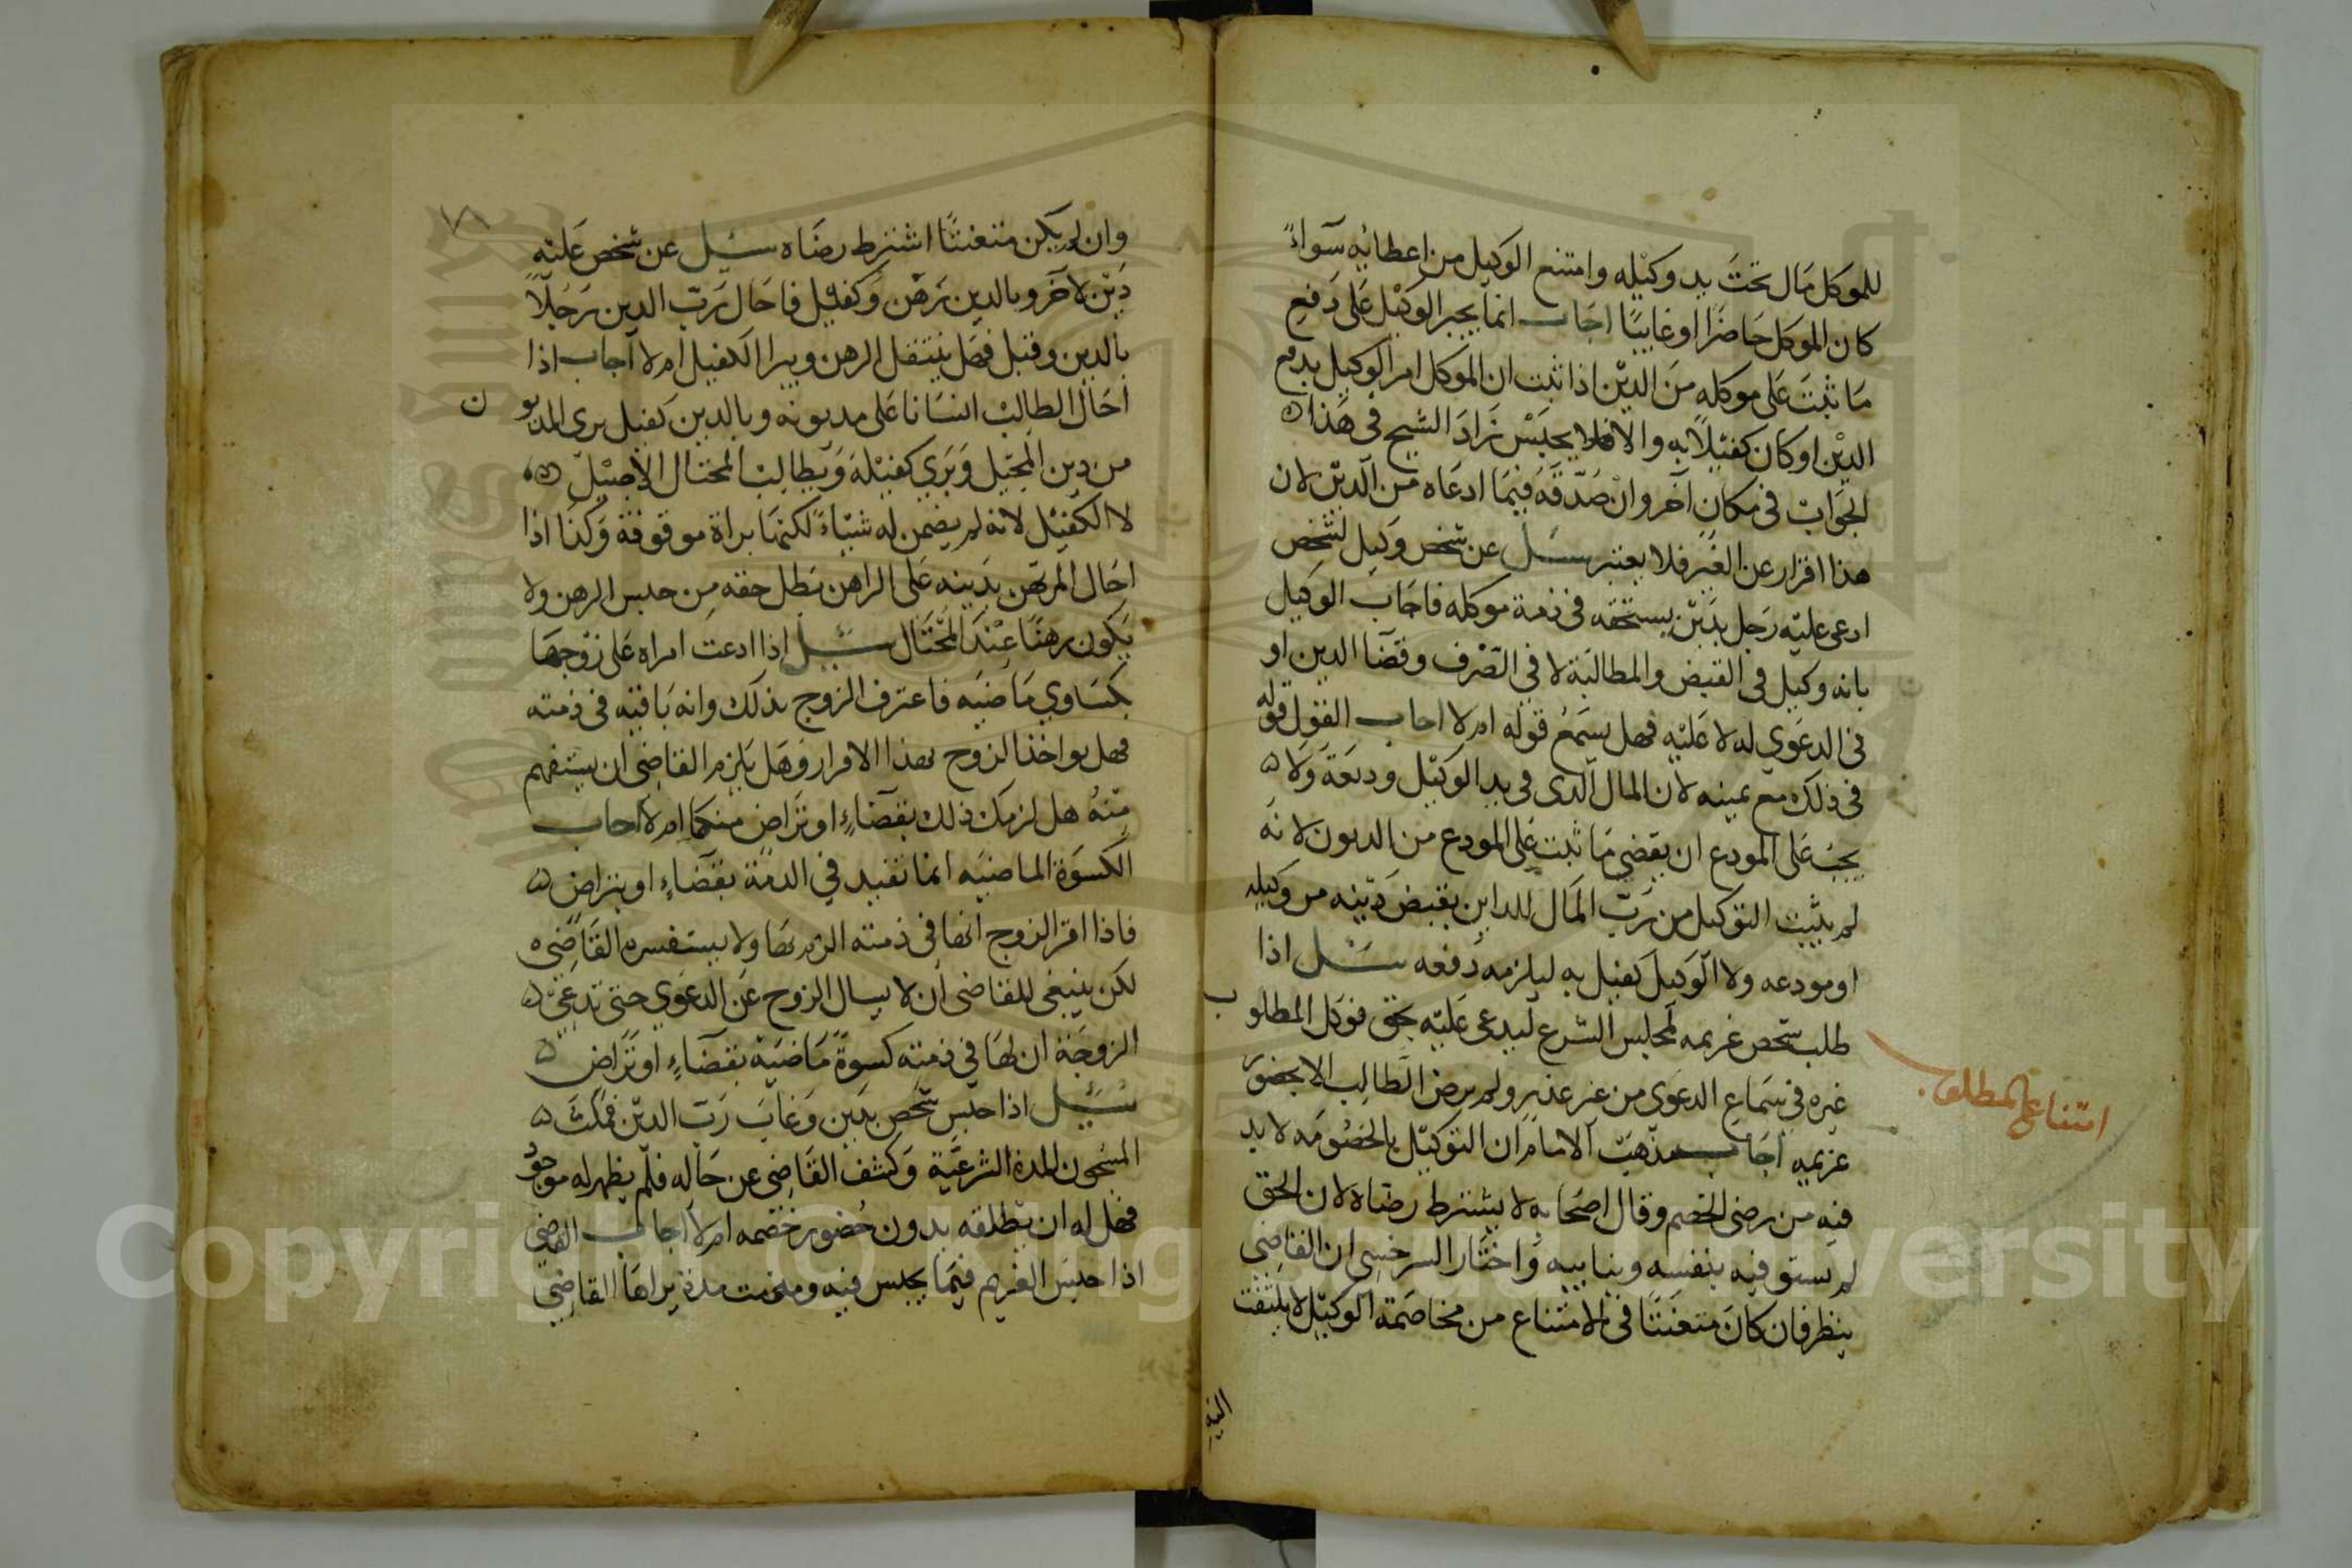 للموكل مال تحت يد وكيله وامتنع الوكيل من اعطائه سواءً
كان الموكل حاضرا او غايبًا اجاب انما يجبر الوكيل على دفع
ما ثبت على موكله من الدين اذا ثبت ان الموكل امر الوكيل بدفع
الدين او كان كفيلا به والا فلا يحبس زاد الشيخ في هذا
الجواب في مكان آخر وان صدقه فيما ادعاه من الدين لان
هذا اقرار عن الغير فلا يعتبر سئل عن شخص وكيل لشخص
ادعى عليه رجل بدين يستحقه في ذمة موكله فاجاب الوكيل
بانه وكيل في القبض والمطالبة لا في التصرف وقضا الدين او
في الدعوي له لا عليه فهل يسمع قوله ام لا اجاب القول قوله
في ذلك مع يمينه لان المال الذي في يد الوكيل وديعة ولا
يجب على المودع ان يقضي ما ثبت على المودع من الديون لانه
لم يثبت التوكيل من رب المال للداين بقبض دينه من وكيله
او مودعه ولا الوكيل كفيل به ليلزمه دفعه سئل اذا
طلب شخص غريمه لمجلس الشرع ليدعى عليه بحق فوكل المطلوب
غيره في سماع الدعوى من غير عذر ولم يرض الطالب الا بحضور
غريمه اجاب مذهب الامام ان التوكيل بالخصومه لا بد
فيه من رضى الخصم وقال اصحابه لا يشترط رضاه لان الحق
لم يستوفيه بنفسه وبنايبه واختار السرخسي ان القاضي
ينظر فان كان متعنتا في الامتناع من مخاصمة الوكيل لا يلتفت
اليه
امتناع المطلوب
وان لم يكن متعنتًا اشترط رضاه سئل عن شخص عليه
دين لآخر وبالدين رهن وكفيل فاحال رب الدين رجلًا
بالدين وقبل فهل ينتقل الرهن ويبرا الكفيل ام لا اجاب اذا
احال الطالب انسانا على مديونه وبالدين كفيل بري المديون
من دين المحيل وبري كفيله ويطالب المحتال الاصيل
لا الكفيل لانه لم يضمن له شيئاً لكنها براة موقوفة وكذا اذا
احال المرتهن بدينه على الراهن بطل حقه من حبس الرهن ولا
يكون رهنًا عند المحتال سئل اذا ادعت امراه على زوجها
بكساوي ماضيه فاعترف الزوج بذلك وانه باقيه في ذمته
فهل يواخذ الزوج بهذا الاقرار وهل يلزم القاضي ان يستفهم
منه هل لزمك ذلك بقضاءٍ او تراض منكما ام لا اجاب
الكسوة الماضيه انما تفيد في الذمة بقضاءٍ او بتراض
فاذا اقر الزوج انها في ذمته الزم بها ولا يستفسره القاضي
لكن ينبغي للقاضي ان لا يسال الزوج عن الدعوي حتى تدعي
الزوجة ان لها في ذمته كسوة ماضية بقضاءٍ او تراض
سئل اذا حبس شخص بدين وغاب رب الدين فمكث
المسجون المدة الشرعية وكشف القاضي عن حاله فلم يظهر له موجود
فهل له ان يطلقه بدون حضور خصمه ام لا اجاب القاضي
اذا حبس الغريم فيما يحبس فيه ومضت مدة يراها القاضي
Copyright © King Saud University